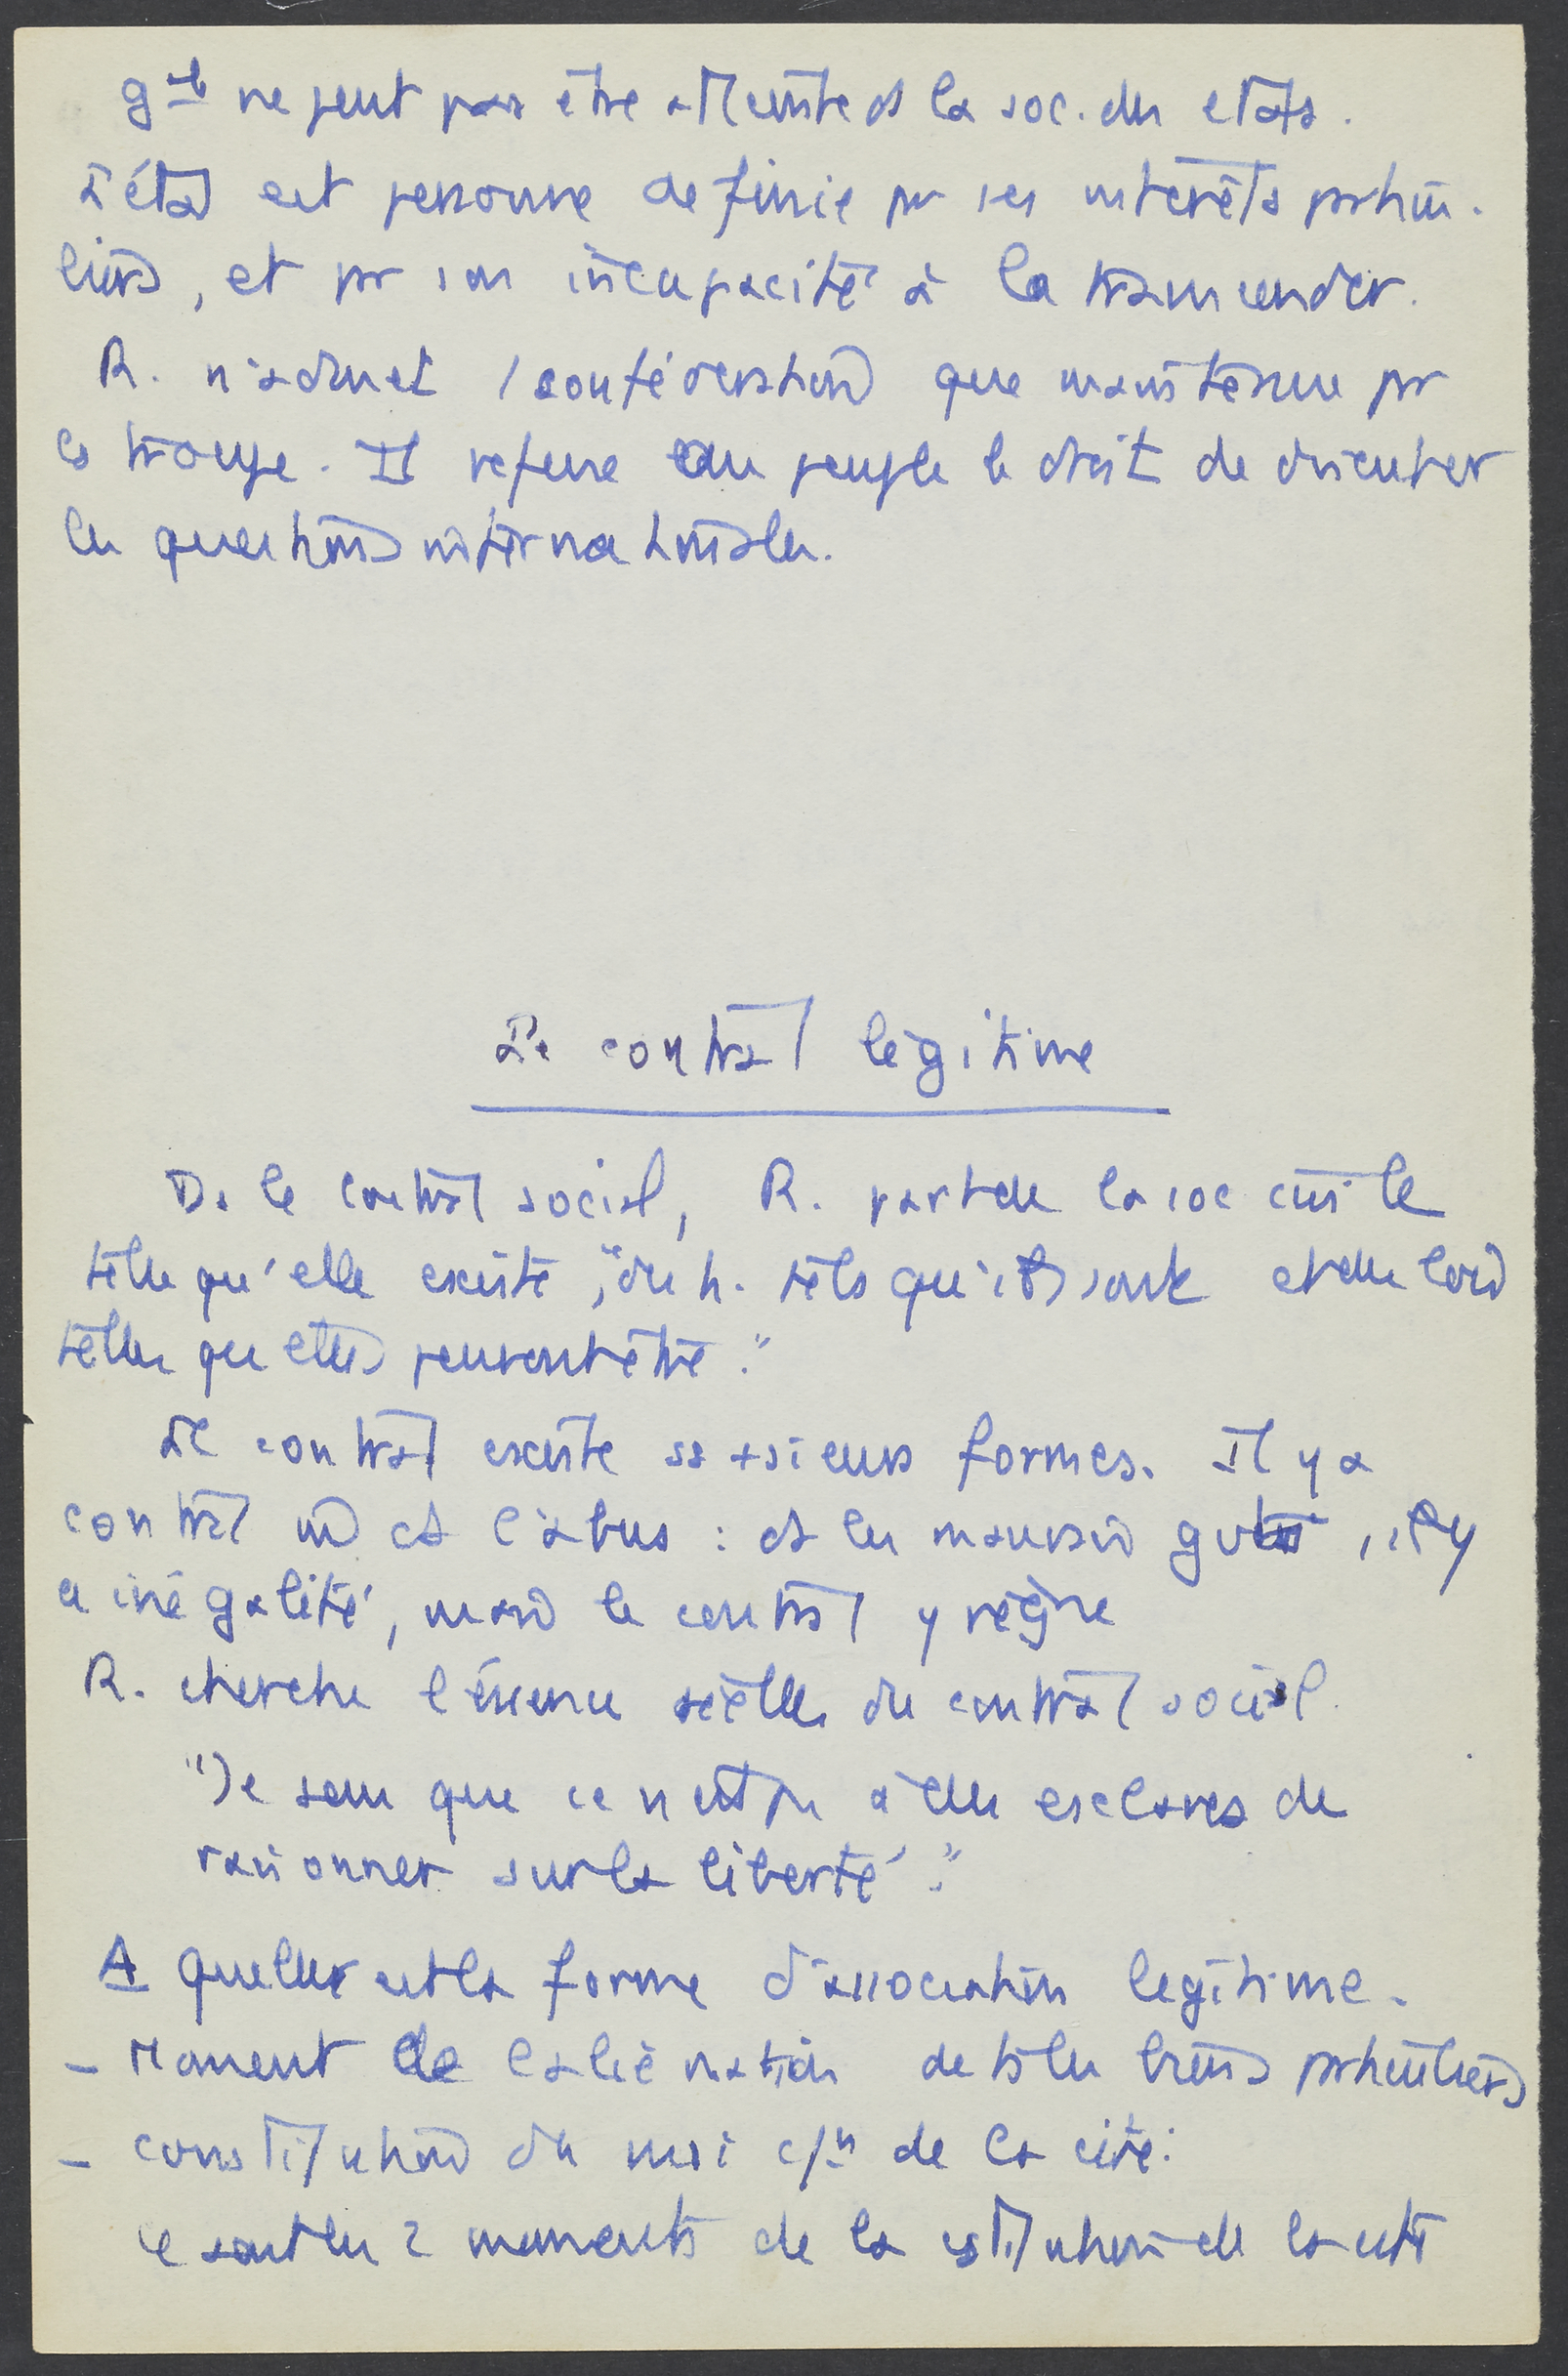 gale ne peut pas être atteinte ds la soc. des etats.
L'état est personne definie par ses interêts particu-
liers, et par son incapacité à la transcender.
R. n'admet / confédération que maintenue par
la troupe. Il refuse au peuple le droit de discuter
les questions internationales.
Le contrat légitime
Ds le contrat social, R. part de la soc civile
telle qu'elle existe, "des h. tels qu'ils sont et des lois
telles que elles peuvent être."
Le contrat existe ss +sieurs formes. Il y a
contrat ds l'abus : ds les mauvais gvts, il y
a inégalité, mais le contrat y règne
R. cherche l'essence réelle du contrat social.
"Je sens que ce n'est pas à des esclaves de
raisonner sur la liberté."
A quelle est la forme d'association legitime.
- Moment de l'aliénation de ts les biens particuliers
- constitution du moi c/n de la cité:
ce sont les 2 moments de la cstitution de la cité